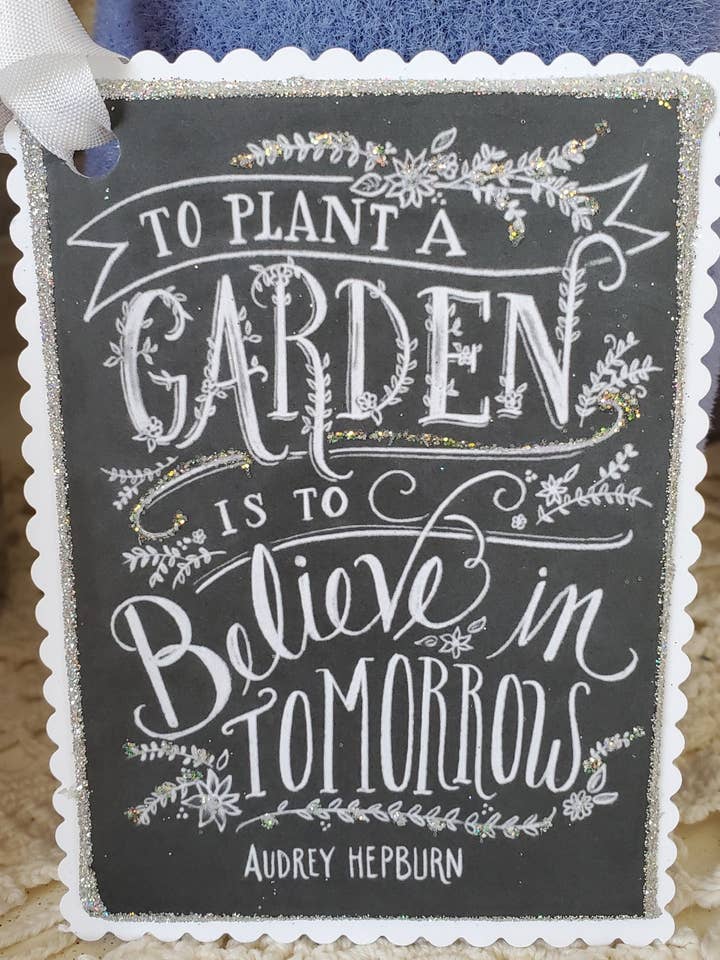 TO PLANT A
GARDEN
IS TO
Believe in
TOMORROW
AUDREY HEPBURN